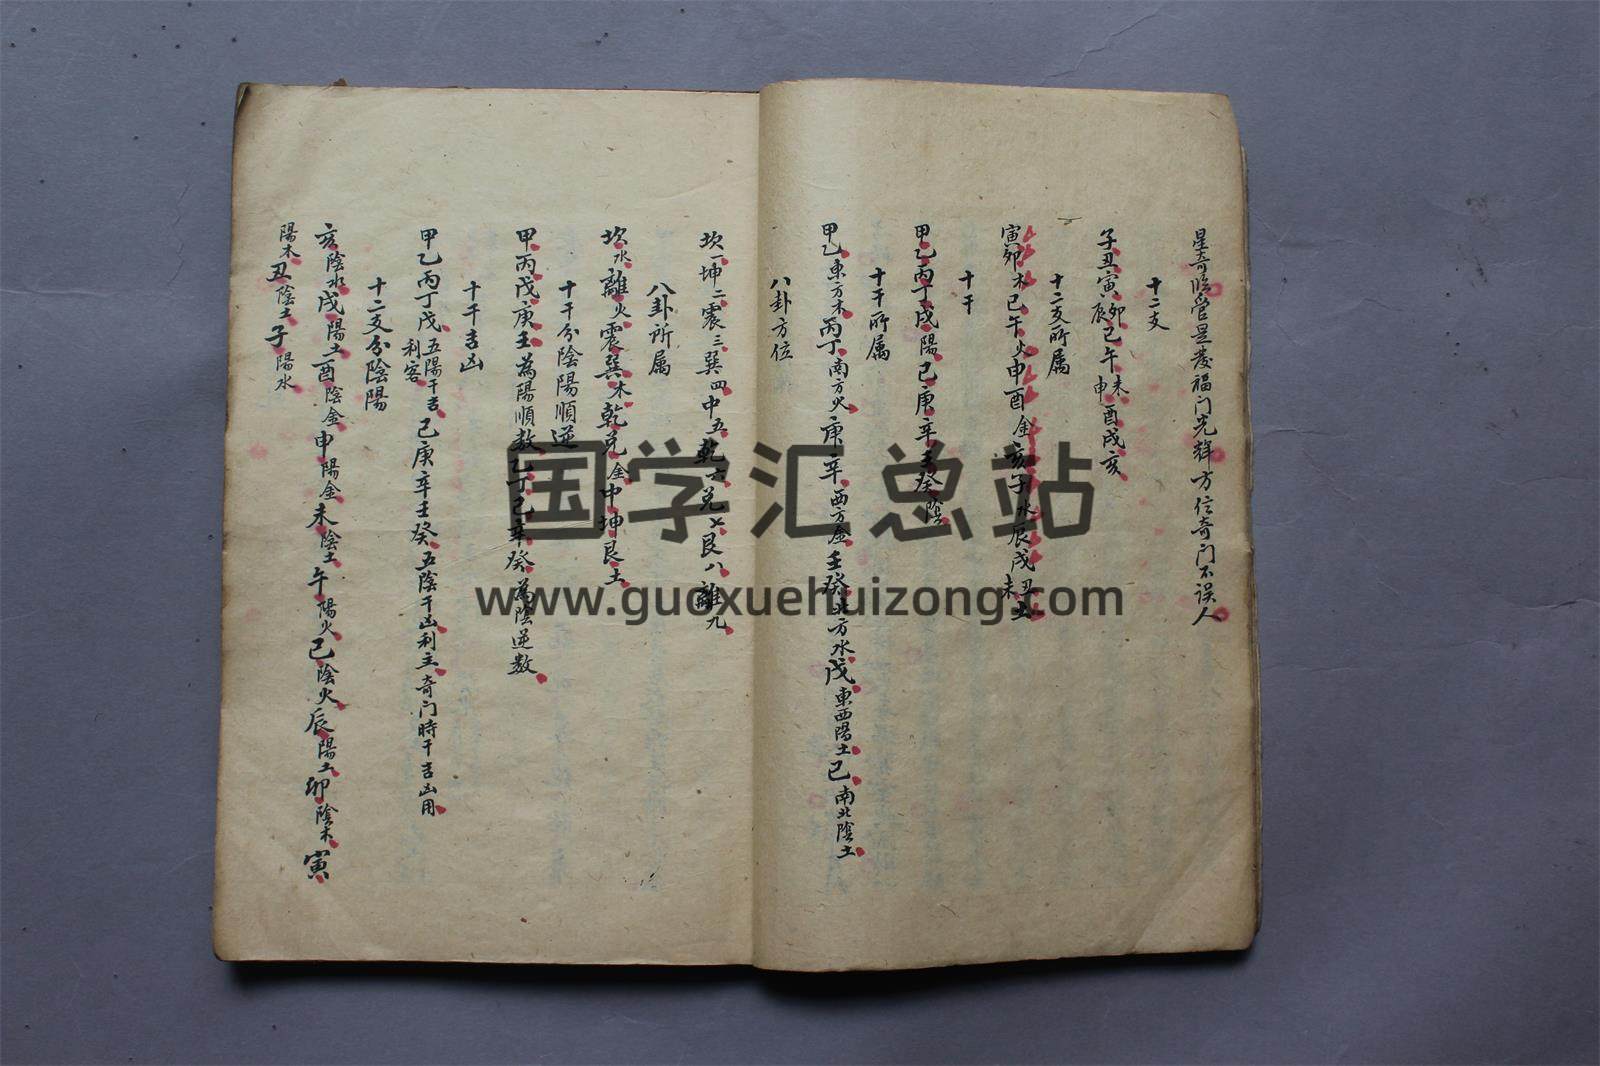 星奇臨管是發福門光輝方位奇门不误人
十二支
子丑寅卯辰巳午未申酉戌亥
十二支所属
寅卯木巳午火申酉金亥子水辰戌丑未土
十干
甲乙丙丁戊陽己庚辛壬癸陰
十干所属
甲乙東方木丙丁南方火庚辛西方金壬癸北方水戊東西陽土己南北陰土
八卦方位
坎一坤二震三巽四中五乾六兑七艮八離九
八卦所属
坎水離火震巽木乾兑金中坤艮土
十干分陰陽順逆
甲丙戊庚壬為陽順数乙丁己辛癸為陰逆数
十干吉凶
甲乙丙丁戊五陽干吉利客己庚辛壬癸五陰干凶利主奇门時干吉凶用
十二支分陰陽
亥陰水戌陽土酉陰金申陽金未陰土午陽火巳陰火辰陽土卯陰木寅
陽木丑陰土子陽水
国学汇总站
www.guoxuehuizong.com